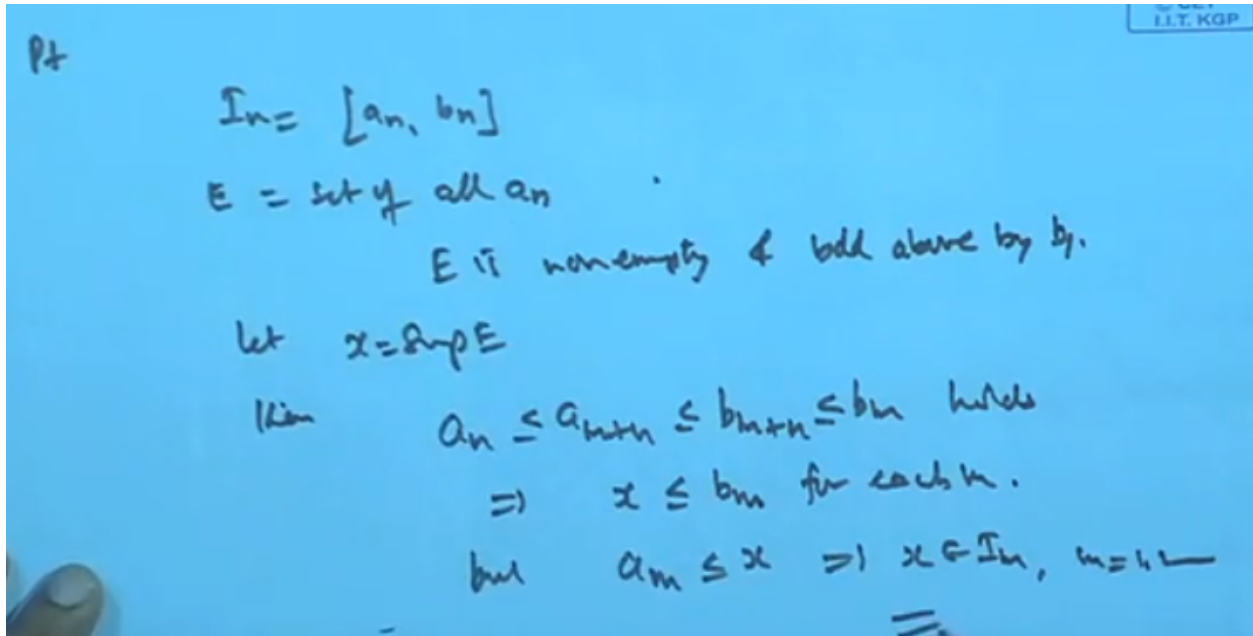 I.I.T. KGP
Pf
In = [an, bn]
E = set of all an
E is nonempty & bdd above by b1.
Let x = Sup E
Then an ≤ am+n ≤ bm+n ≤ bm holds
=> x ≤ bm for each m.
but am ≤ x => x ∈ Im, m=1,2